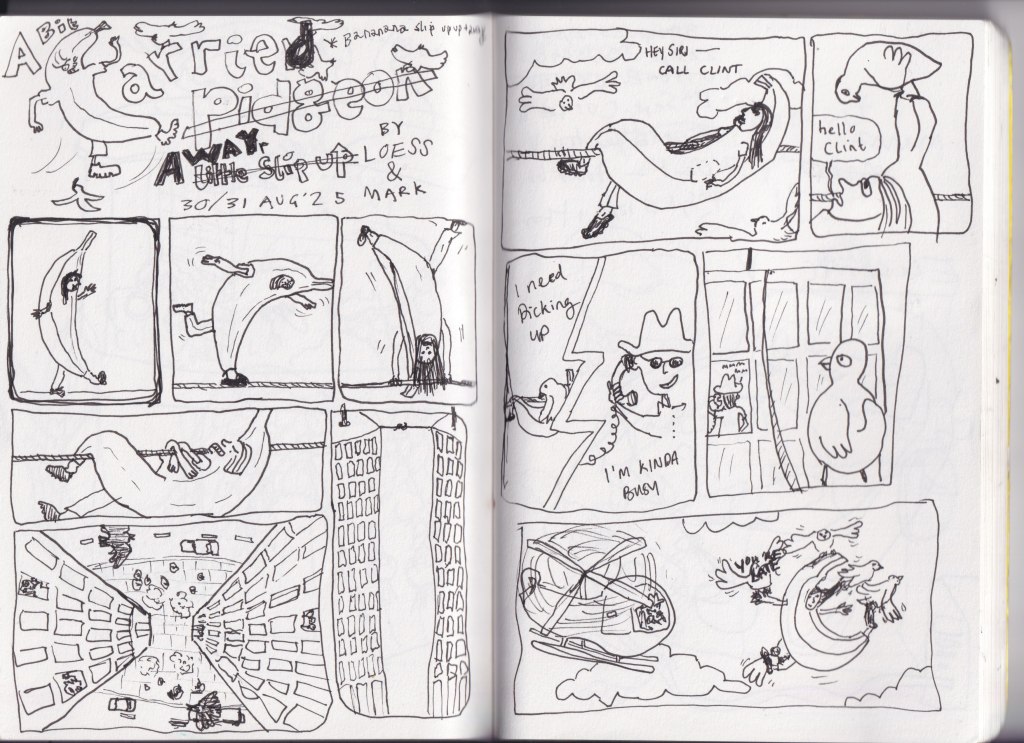 A Bit
Carried
* Bananana slip up up + away
pidgeon
AWAY
Little slip up
BY
LOESS
&
MARK
30/31 AUG '25
HEY SIRI —
CALL CLINT
hello
Clint
I need
Picking
UP
I'M KINDA
BUSY
YOU'RE
LATE